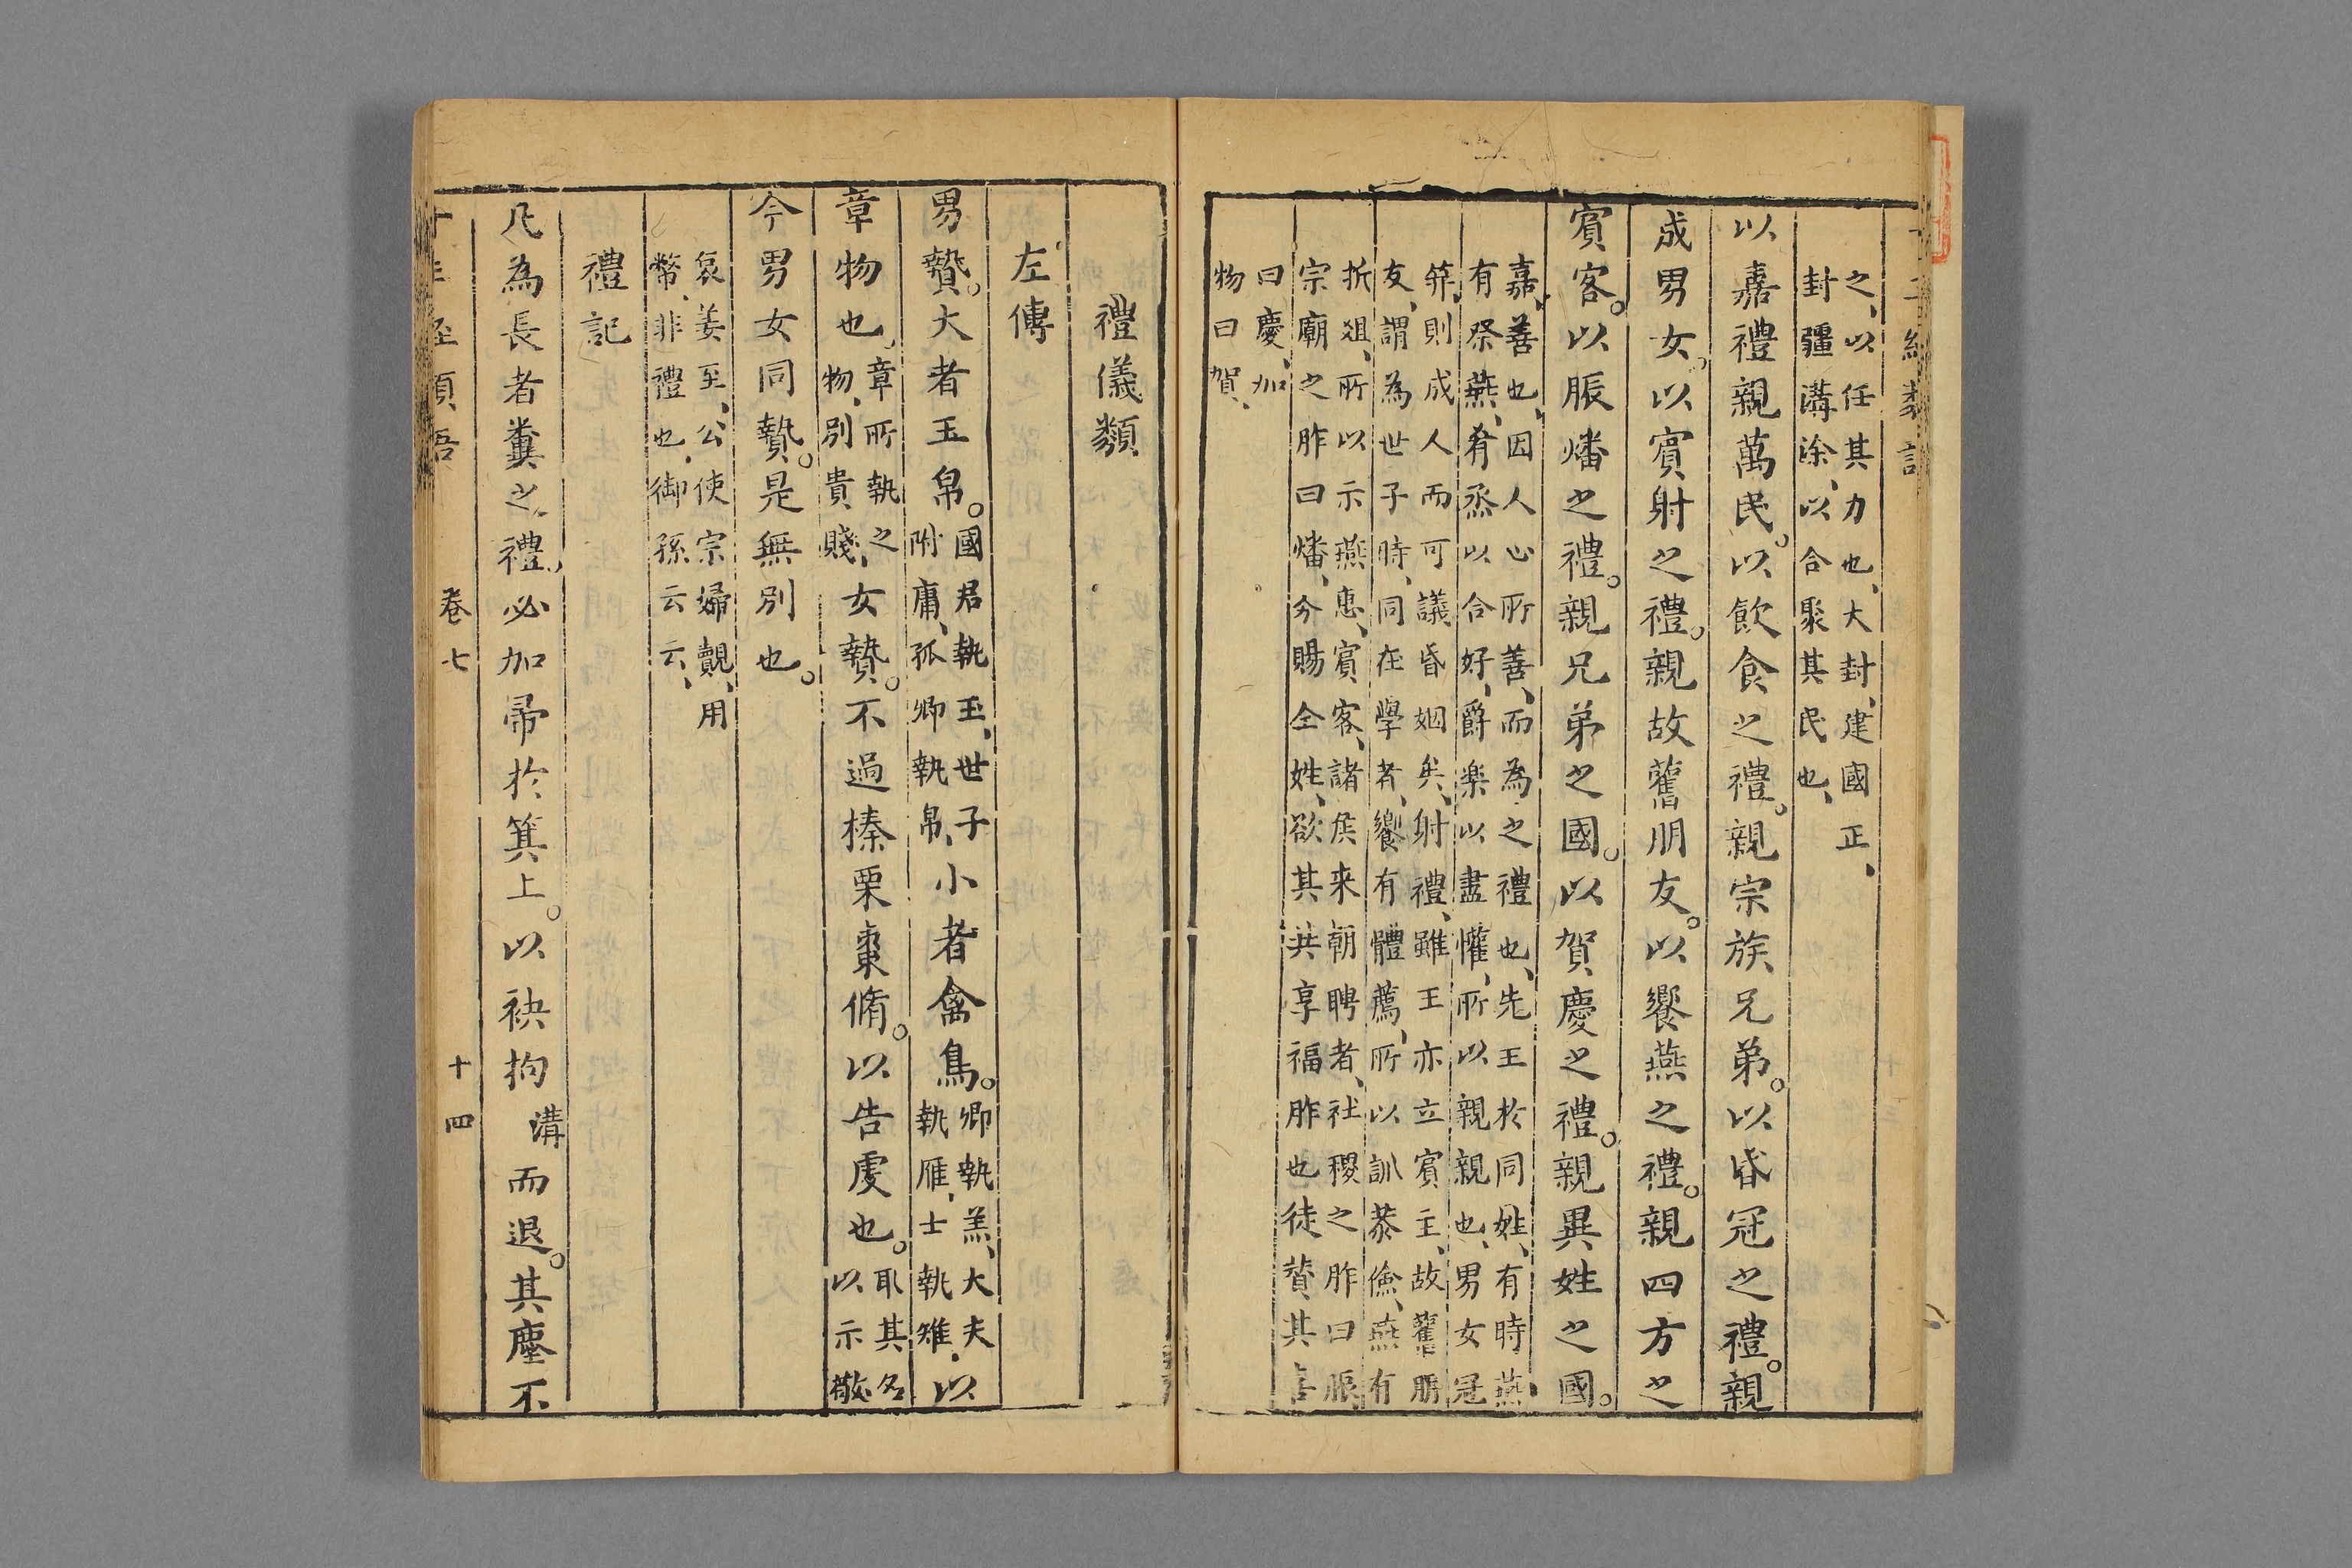 之、以任其力也、大封、建國正、
封疆溝涂、以合聚其民也、
以嘉禮親萬民。以飲食之禮。親宗族兄弟。以昏冠之禮。親
成男女。以賓射之禮。親故舊朋友。以饗燕之禮。親四方之
賓客。以脤燔之禮。親兄弟之國。以賀慶之禮。親異姓之國。
嘉、善也、因人心所善、而為之禮也、先王於同姓、有時燕、
有祭燕、肴烝以合好、爵楽以盡懽、所以親親也、男女冠
筓、則成人而可議昏姻矣、射禮、雖王亦立賓主、故舊朋
友、謂為世子時、同在學者、饗有體薦、所以訓恭儉、燕有
折爼、所以示燕惠、賓客、諸侯来朝聘者、社稷之胙曰脤、
宗廟之胙曰燔、分賜仝姓、欲其共享福胙也徒賛其喜
曰慶、加
物曰賀、
禮儀類
左傳
男贄。大者玉帛。國君執玉、世子附庸、孤卿執帛、小者禽鳥。卿執羔、大夫執雁、士執雉、以
章物也、章所執之物、別貴賤、女贄。不過榛栗棗脩。以告虔也。取其名以示敬
今男女同贄。是無別也。
哀姜至、公使宗婦覿、用
幣、非禮也、御孫云云、
禮記
凡為長者糞之禮。必加帚於箕上。以袂拘溝而退。其塵不
卷七 十四